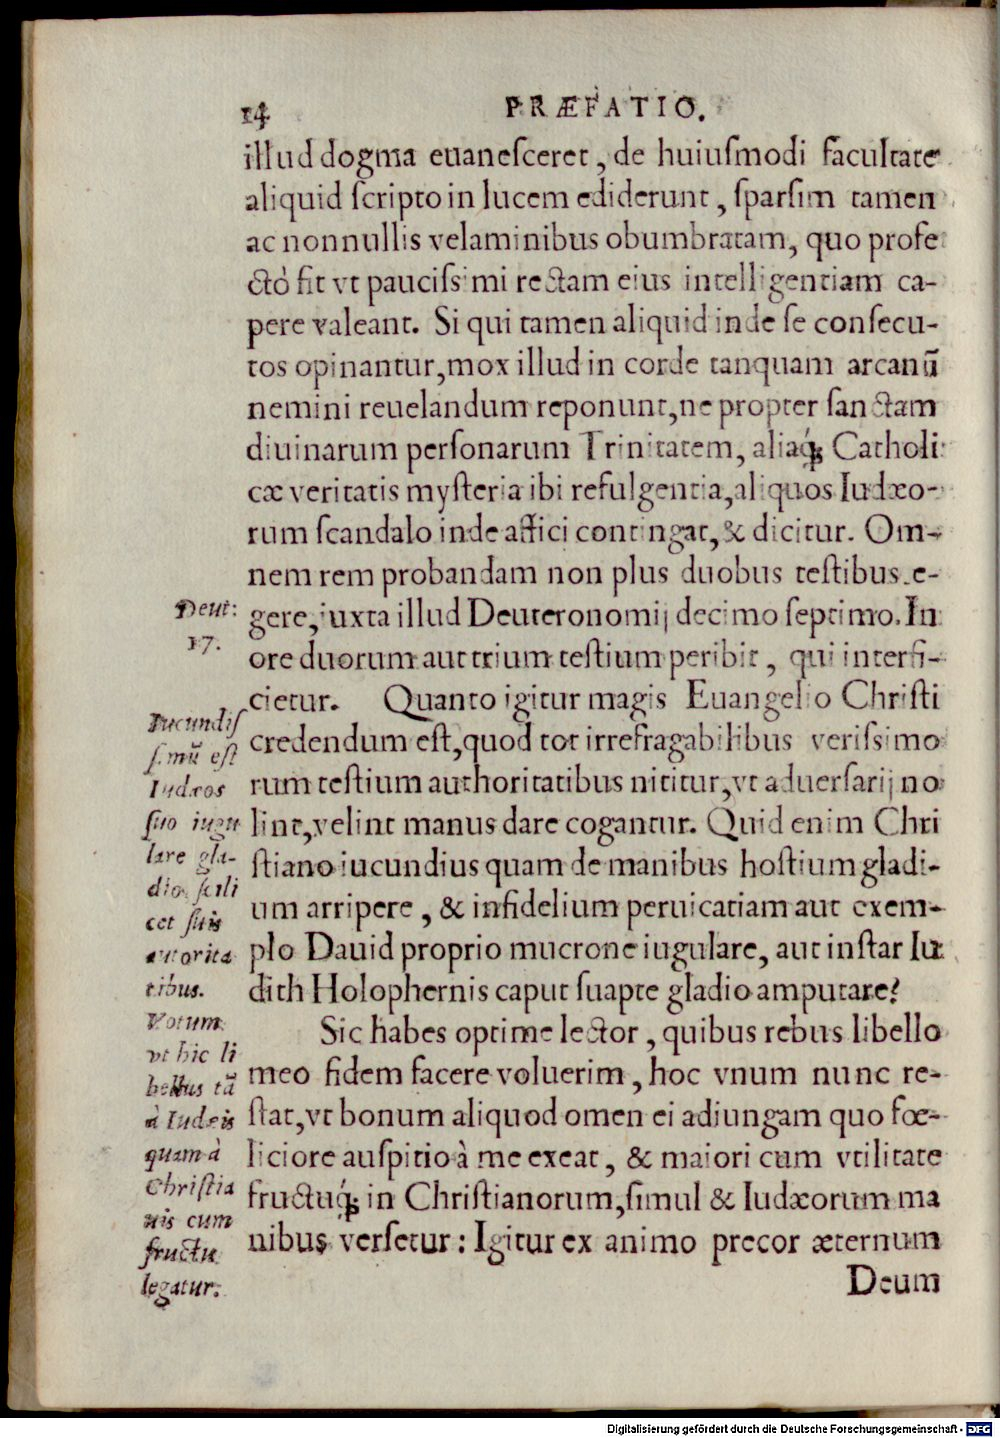 14
PRÆFATIO.
illud dogma euanesceret, de huiuſmodi facultate
aliquid ſcripto in lucem ediderunt, ſparſim tamen
ac nonnullis velaminibus obumbratam, quo profe
ctò fit vt pauciſsimi rectam eius intelligentiam ca-
pere valeant. Si qui tamen aliquid inde ſe conſecu-
tos opinantur, mox illud in corde tanquam arcanū
nemini reuelandum reponunt, ne propter ſanctam
diuinarum perſonarum Trinitatem, aliaq́; Catholi
cæ veritatis myſteria ibi refulgentia, aliquos Iudæo-
rum ſcandalo inde affici contingat, & dicitur. Om-
nem rem probandam non plus duobus teſtibus e-
gere, iuxta illud Deuteronomij decimo ſeptimo. In
ore duorum aut trium teſtium peribit, qui interfi-
cietur. Quanto igitur magis Euangelio Chriſti
credendum eſt, quod tot irrefragabilibus veriſsimo
rum teſtium authoritatibus nititur, vt aduerſarij no
lint, velint manus dare cogantur. Quid enim Chri
ſtiano iucundius quam de manibus hoſtium gladi-
um arripere, & infidelium peruicatiam aut exem-
plo Dauid proprio mucrone iugulare, aut inſtar Iu
dith Holophernis caput ſuapte gladio amputare?
Sic habes optime lector, quibus rebus libello
meo fidem facere voluerim, hoc vnum nunc re-
ſtat, vt bonum aliquod omen ei adiungam quo fœ-
liciore auſpitio à me exeat, & maiori cum vtilitate
fructuq́; in Chriſtianorum, ſimul & Iudæorum ma
nibus verſetur: Igitur ex animo precor æternum
Deum
Deut:
17.
Iucundiſ
ſimū eſt
Iudæos
ſuo iugu
lare gla-
dio, ſcili
cet ſuis
autorita
tibus.
Votum
vt hic li
bellus tā
à Iudæis
quam à
Chriſtia
nis cum
fructu
legatur.
Digitalisierung gefördert durch die Deutsche Forschungsgemeinschaft - DFG